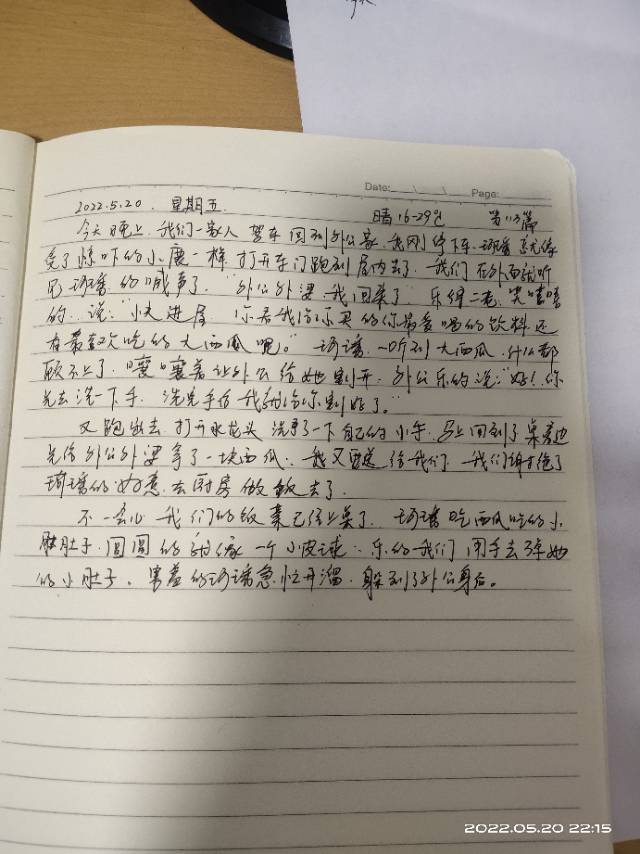 Date: Page:
2022.5.20. 星期五 晴16-29℃ 第113篇
今天晚上,我们一家人驾车回到外公家,我刚停下车,瑶瑶就像
受了惊吓的小鹿一样,打开车门跑到屋内去了,我们在外面就听
见瑶瑶的喊声了,"外公外婆,我回来了",乐得二老,笑嘻嘻
的,说:"快进屋,你看我给你买的你最爱喝的饮料,还
有喜欢吃的大西瓜呢。"瑶瑶一听到大西瓜,什么都
顾不上了,嚷嚷着让外公给她割开,外公乐的说:"好!你
先去洗一下手,洗完手后我就给你割好了。"
又跑出去,打开水龙头,洗了一下自己的小手,马上回到了桌边
先给外公外婆拿了一块西瓜,又送给我们,我们谢绝了
瑶瑶的好意,去厨房做饭去了。
不一会儿,我们的饭菜已经上桌了,瑶瑶吃西瓜吃的小
肚子,圆圆的就像一个小皮球,乐的我们用手去弹她
的小肚子,害羞的瑶瑶急忙开溜,躲到了外公身后。
2022.05.20 22:15